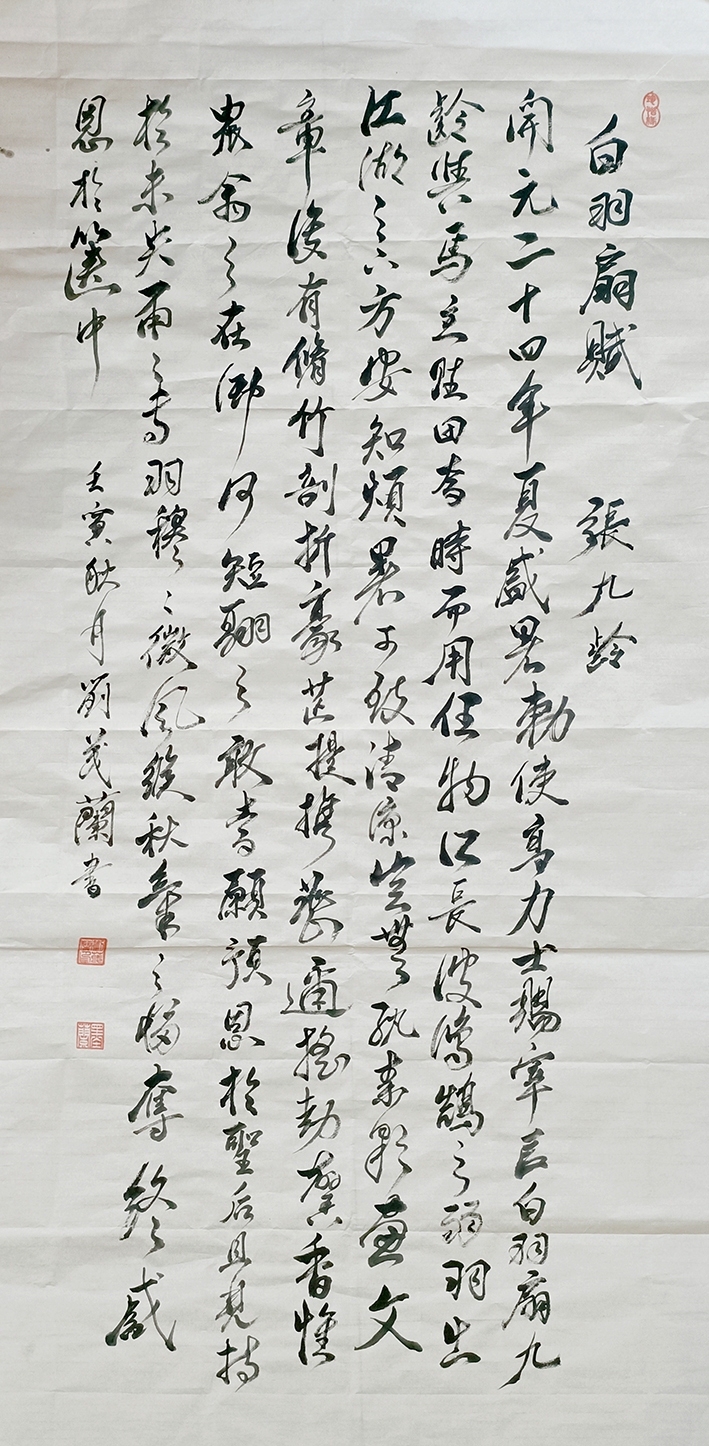 白羽扇賦 張九齡
開元二十四年夏盛暑勅使高力士賜宰臣白羽扇九
齡與焉立賦曰當時而用任物所長彼鴻鵠之弱羽出
江湖之下方安知煩暑可致清涼豈無紈素彩畫文
章復有脩竹剖析毫芒提攜密邇搖動馨香惟
衆禽之在御何短翮之敢當願預恩於聖后且見持
於未央而之 羽穆穆微風縱秋氣之移奪終感
恩於篋中
壬寅秋月 茂蘭書